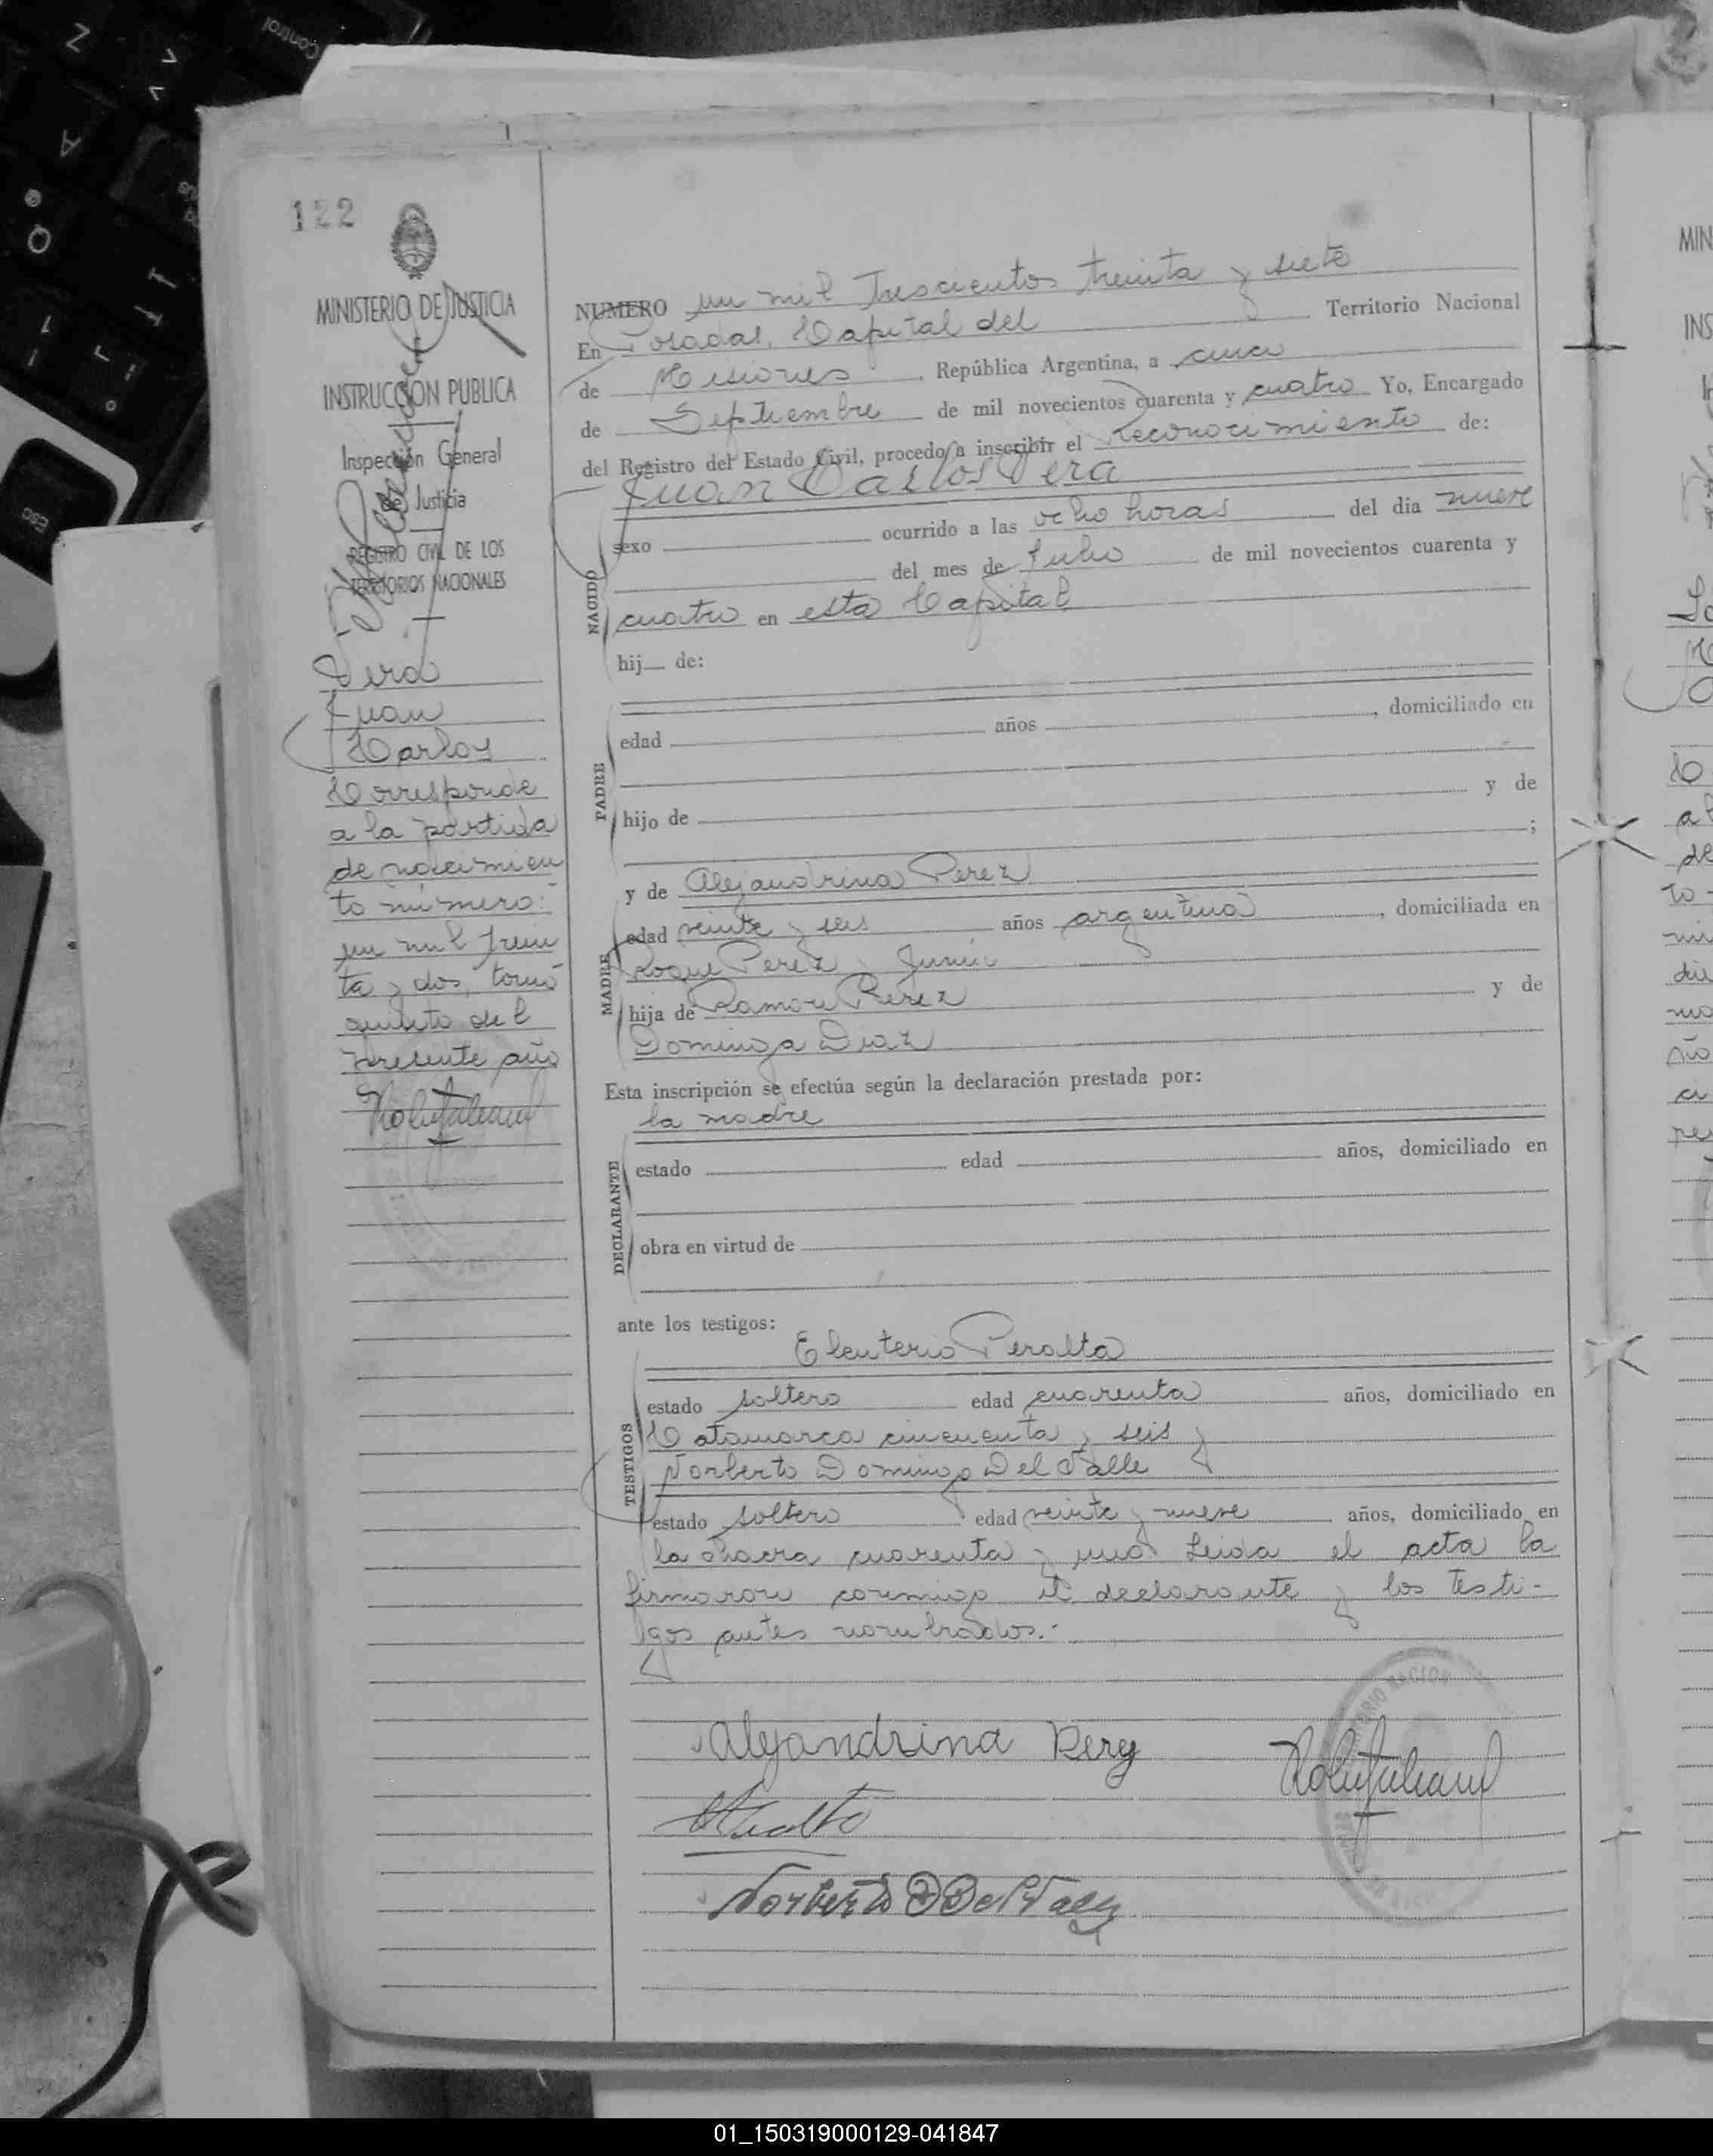 122
MINISTERIO DE JUSTICIA
INSTRUCCION PUBLICA
Inspección General
de Justicia
REGISTRO CIVIL DE LOS
TERRITORIOS NACIONALES
Reconocimiento
Vera
Juan
Carlos
Corresponde
a la partida
de nacimien
to número:
un mil trein
ta y dos, tomo
quinto del
presente año
NUMERO un mil Trescientos treinta y siete
En Posadas, Capital del Territorio Nacional
de Misiones República Argentina, a cinco
de Septiembre de mil novecientos cuarenta y cuatro Yo, Encargado
del Registro del Estado Civil, procedo a inscribir el reconocimiento de:
Juan Carlos Vera
NACIDO
sexo ocurrido a las ocho horas del dia nueve
del mes de Julio de mil novecientos cuarenta y
cuatro en esta Capital
hij de:
PADRE
edad años , domiciliado en
hijo de y de
;
y de Alejandrina Perez
MADRE
edad veinte y seis años argentina , domiciliada en
Roque Perez y Junin
hija de Ramon Perez y de
Dominga Diaz
Esta inscripción se efectúa según la declaración prestada por:
la madre
DECLARANTE
estado edad años, domiciliado en
obra en virtud de
ante los testigos:
Eleuterio Peralta
TESTIGOS
estado soltero edad cuarenta años, domiciliado en
Catamarca cincuenta y seis y
Norberto Domingo Del Valle
estado soltero edad veinte y nueve años, domiciliado en
la chacra cuarenta y uno. Leida el acta la
firmaron conmigo el declarante y los testi-
gos antes nombrados.-
Alejandrina Perez
Norberto D Del Valle
MIN
INS
01_150319000129-041847